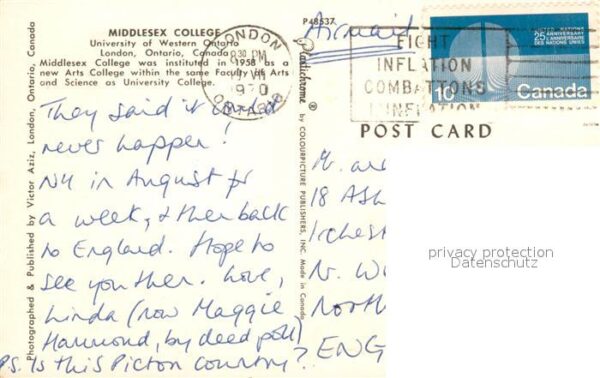 MIDDLESEX COLLEGE
University of Western Ontario
London, Ontario, Canada
Middlesex College was instituted in 1958 as a
new Arts College within the same Faculty of Arts
and Science as University College.
P48537
Airmail
LONDON
PM
VII
1970
ONTARIO
FIGHT
INFLATION
COMBATTONS
L'INFLATION
UNITED NATIONS
25th ANNIVERSARY
25e ANNIVERSAIRE
DES NATIONS UNIES
10 Canada
POST CARD
They said it would
never happen!
NY in August for
a week, & then back
to England. Hope to
see you then. Love,
Linda (now Maggie
Hammond, by deed poll)
P.S. Is this Picton country?
18
N.
ENG
Photographed & Published by Victor Aziz, London, Ontario, Canada
Plastichrome ® by COLOURPICTURE PUBLISHERS, INC. Made in Canada
privacy protection
Datenschutz